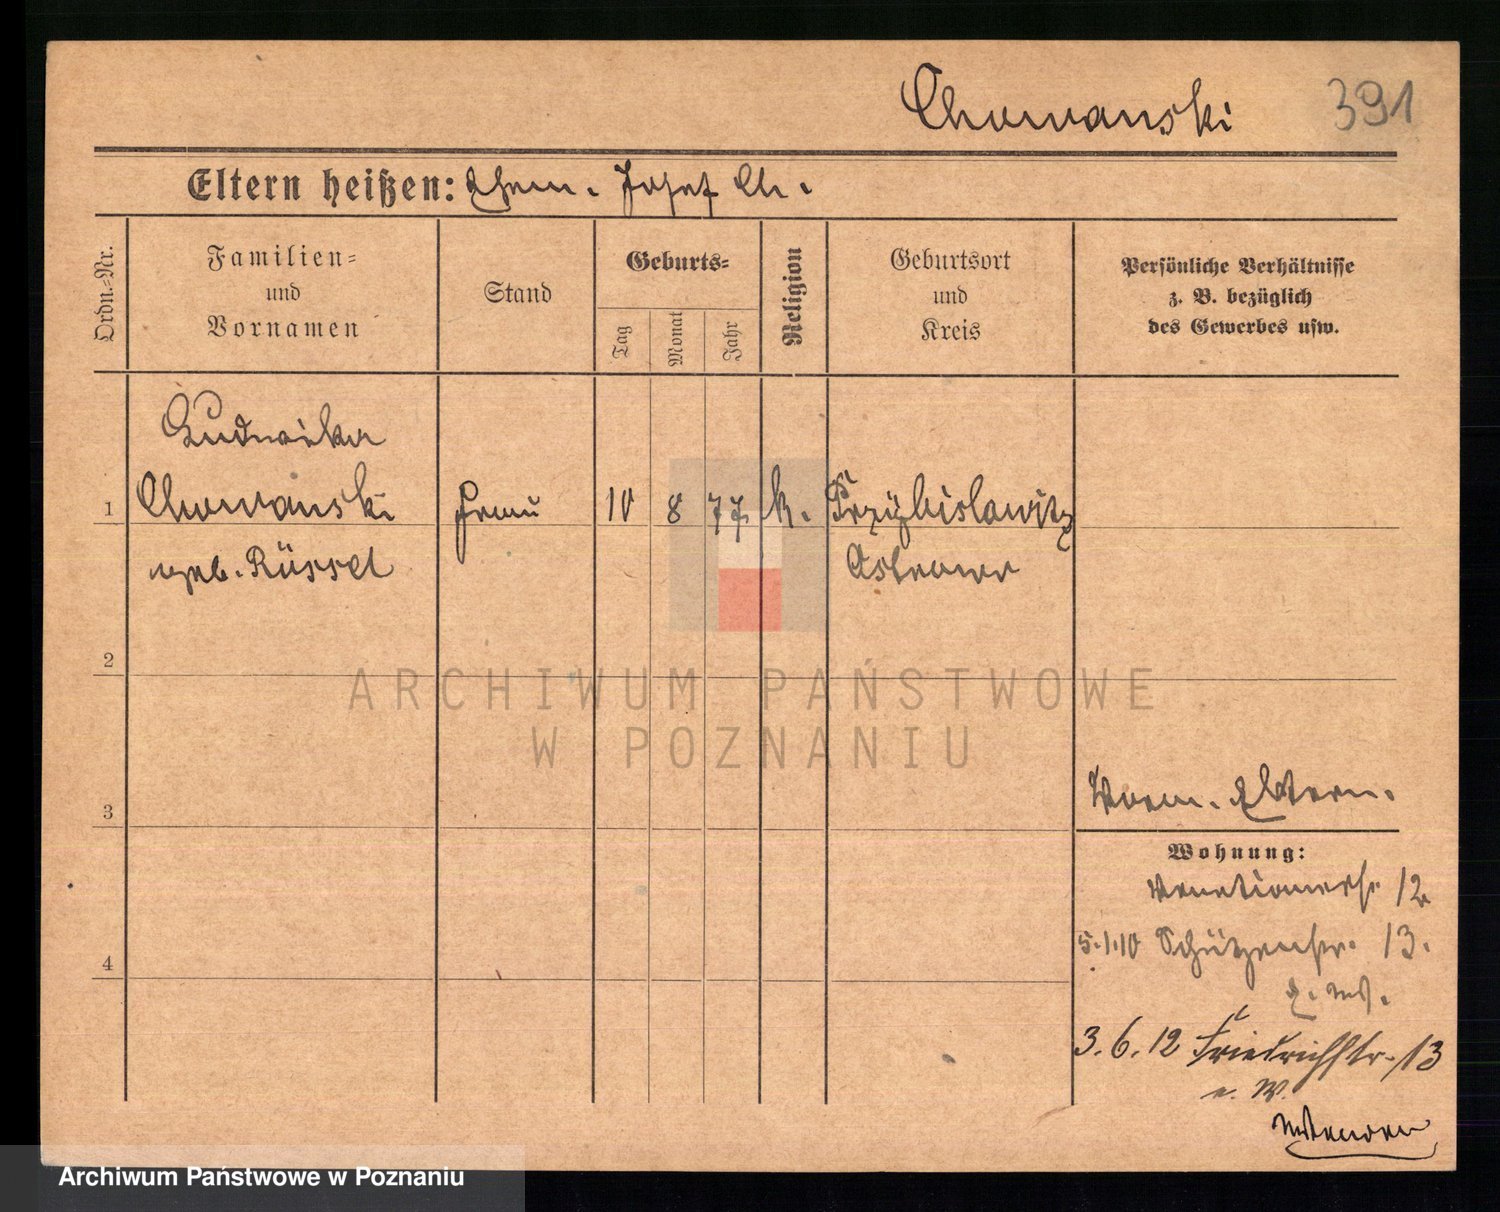 Chowanski 391
Eltern heißen: Ehem. Josef Ch.
Ordn.-Nr.
Familien-
und
Vornamen
Stand
Geburts-
Tag
Monat
Jahr
Religion
Geburtsort
und
Kreis
Persönliche Verhältnisse
z. B. bezüglich
des Gewerbes usw.
Ludwika
1 Chowanski Frau 10 8 77 k. Przybislawitz
geb. Rüssel
2
ARCHIWUM PAŃSTWOWE
W POZNANIU
3 Eltern.
Wohnung:
Venetianerstr. 12
4 5.1.10 Schützenstr. 13.
3.6.12 Friedrichstr. 13
Archiwum Państwowe w Poznaniu